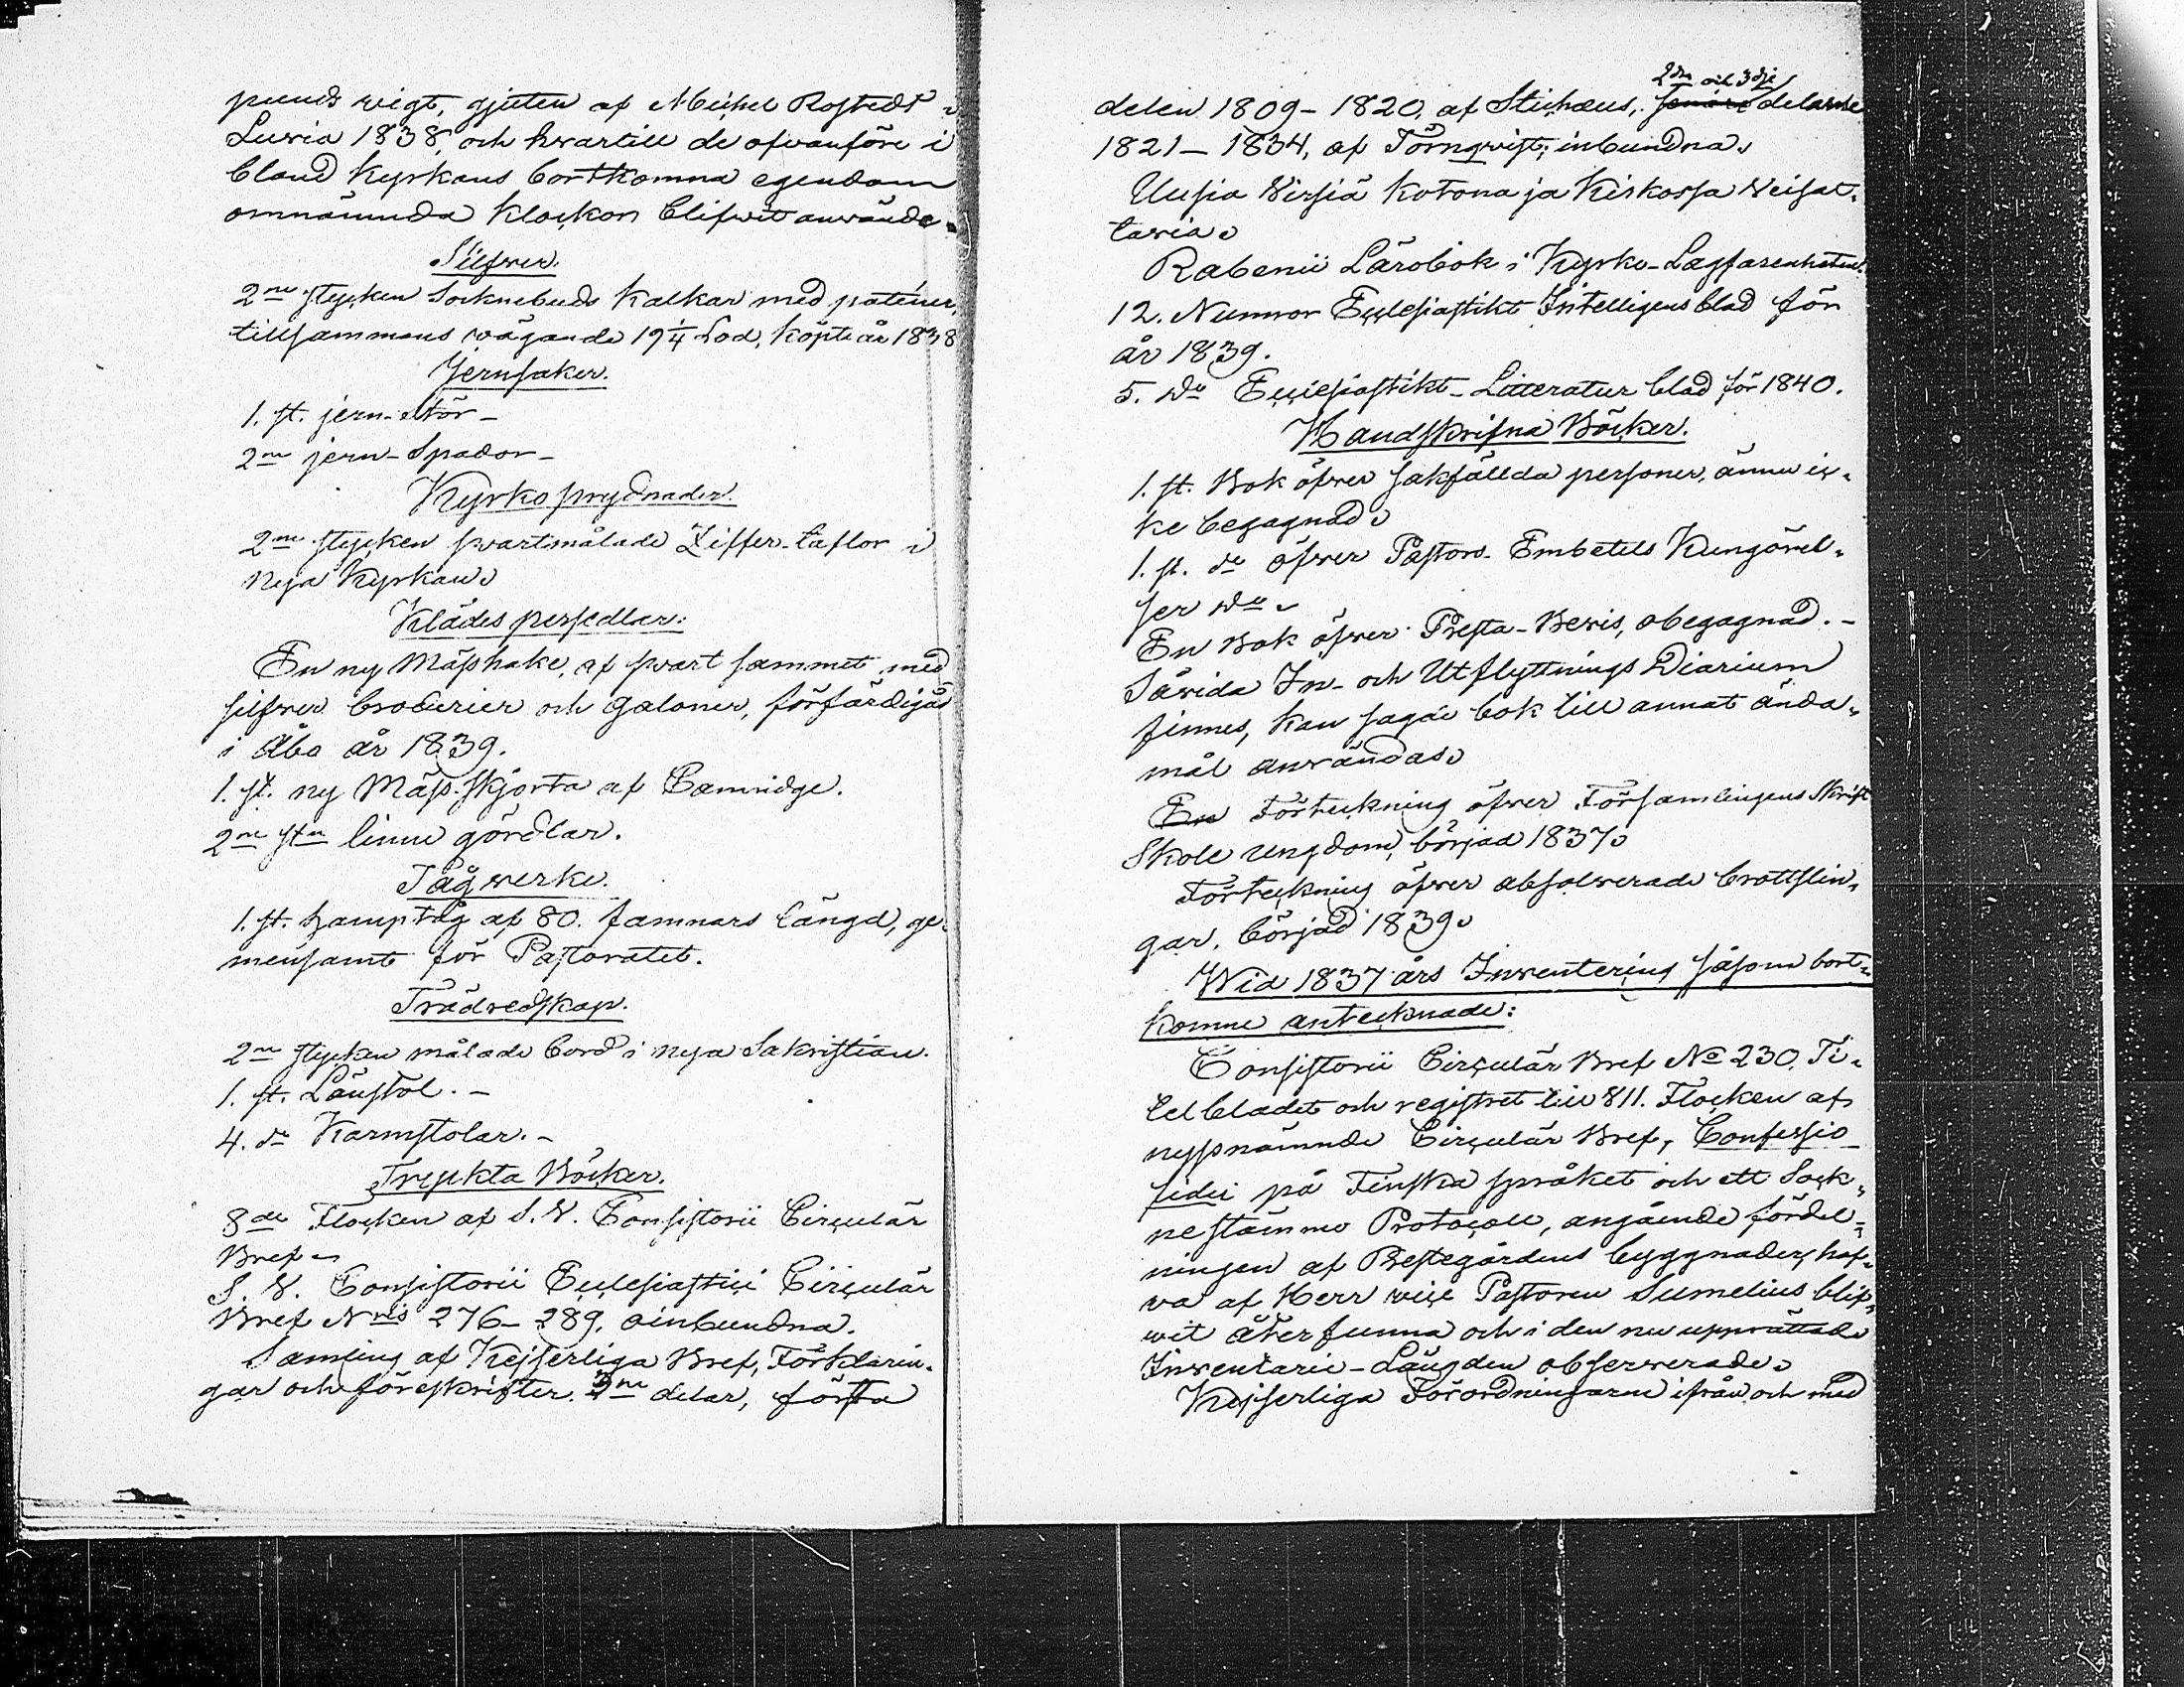 punds vigt, gjuten af Michel Rostedt i
Luvia 1838, och hwartill de ofvanföre i
bland Kyrkans bortkomna egendom
omnämnda Klockon blifwit använde.
Silfwer.
2ne stycken Socknebuds Kalkar med paténer,
tillsammans wägande 19 1/4 Lod, köpte år 1838
Jernsaker.
1. st. jern-Stör -
2ne jern-Spador -
Kyrkoprydnader.
2ne stycken svartmålade Ziffer-taflor i
nya Kyrkan.
Klädes persedlar:
En ny Mässhake, af svart sammet med
silfwer broderier och Galoner, förfärdigad
i Åbo år 1839.
1. st. ny Mäss-skjorta af Camridge.
2ne st:n linne gördlar.
Tågwerke.
1. st. hamptåg af 80. famnars längd, ge-
mensamt för Pastoratet.
Trädredskap.
2ne stycken målade bord i nya Sakristian.
1. st. Länstol. -
4. do Karmstolar. -
Tryckta Böcker.
8de Flocken af S. V. Consistorii Circulär
Bref
S. V. Consistorii Ecclesiastici Circulär
Bref Nris 276-289, oinbundna.
Samling af Kejserliga Bref, Förklarin-
gar och föreskrifter. 3ne delar, första
2dra och 3dje
delen 1809-1820, af Stichæus, senare delarne
1821-1834, af Törnqvist; inbundna.
Uusia Virsiä Kotona ja Kirkossa Veisat-
tavia.
Rabenii Lärobok i Kyrko-Lagfarenheten.
12. Numror Ecclesiastikt Intelligens blad för
år 1839.
5. Do Ecclesiastikt-Litteratur blad för 1840.
Handskrifna Böcker.
1. st. Bok öfwer sakfällda personer, ännu ic-
ke begagnad.
1. st. do öfwer Pastors-Embetets Kungörel-
ser Do
En Bok öfwer Presta-Bevis, obegagnad. -
Såvida In- och Utflyttnings Diarium
finnes, kan sagde bok till annat ända-
mål användas.
En Förteckning öfwer Församlingens Skrift
Skole ungdom, börjad 1837.
Förteckning öfwer absolverade brottslin-
gar, börjad 1839.
Wid 1837 års Inventering såsom bort-
komne antecknade:
Consistorii Circulär Bref No 230, Ti-
telbladet och registret till 811. Flocken af
nyssnämnde Circulär Bref, Confessio
fidei på Finska språket och ett Sock-
nestämmo Protocoll, angående fördel-
ningen af Prestegårdens byggnader, haf-
va af Herr vice Pastoren Sumelius blif-
wit återfunna och i den nu upprättade
Inventarie-Längden observerade.
Kejserliga Förordningarne ifrån och med